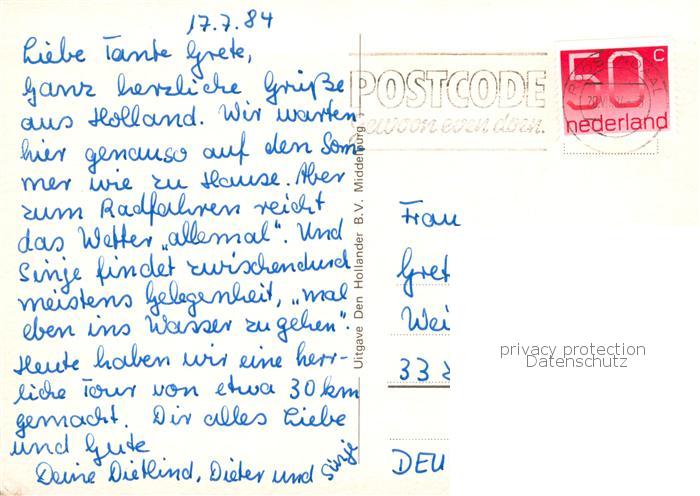 17.7.84
Liebe Tante Grete,
Ganz herzliche Grüße
aus Holland. Wir warten
hier genauso auf den Som-
mer wie zu Hause. Aber
zum Radfahren reicht
das Wetter „allemal“. Und
Sinje findet zwischendurch
meistens Gelegenheit, „mal
eben ins Wasser zu gehen“.
Heute haben wir eine herr-
liche Tour von etwa 30 km
gemacht. Dir alles Liebe
und Gute
Deine Dietlind, Dieter und Sinje
Uitgave Den Hollander B.V. Middelburg
POSTCODE
gewoon even doen.
50 c
nederland
Frau
Gret
Wei
33
DEU
privacy protection
Datenschutz